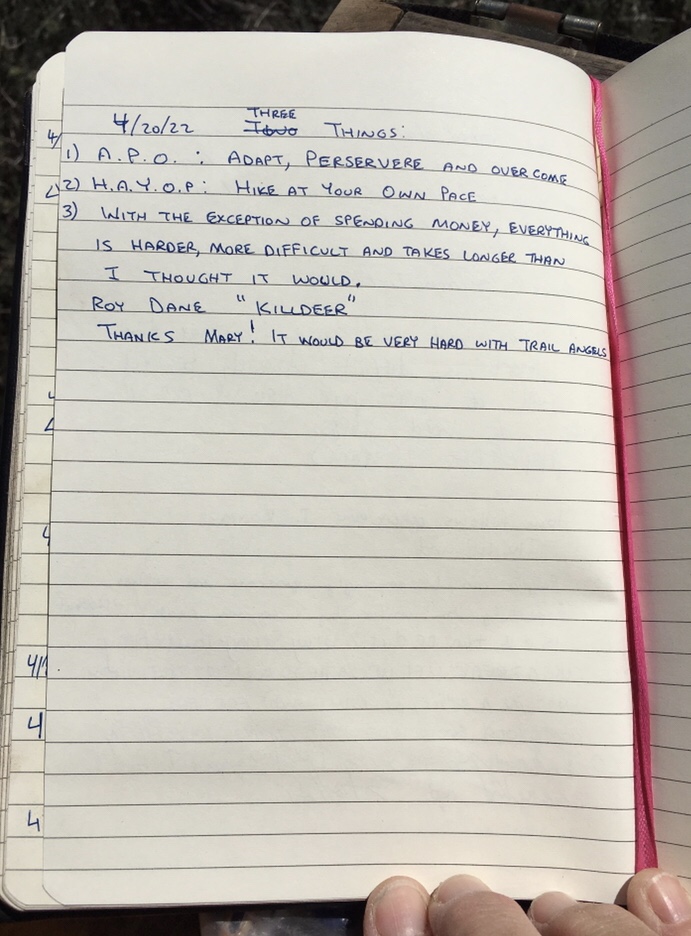 THREE
4/20/22 Two THINGS:
1) A.P.O. : ADAPT, PERSERVERE AND OVERCOME
2) H.A.Y.O.P: HIKE AT YOUR OWN PACE
3) WITH THE EXCEPTION OF SPENDING MONEY, EVERYTHING
IS HARDER, MORE DIFFICULT AND TAKES LONGER THAN
I THOUGHT IT WOULD.
ROY DANE "KILLDEER"
THANKS MARY! IT WOULD BE VERY HARD WITH TRAIL ANGELS
4/
4
4
4/
4
4